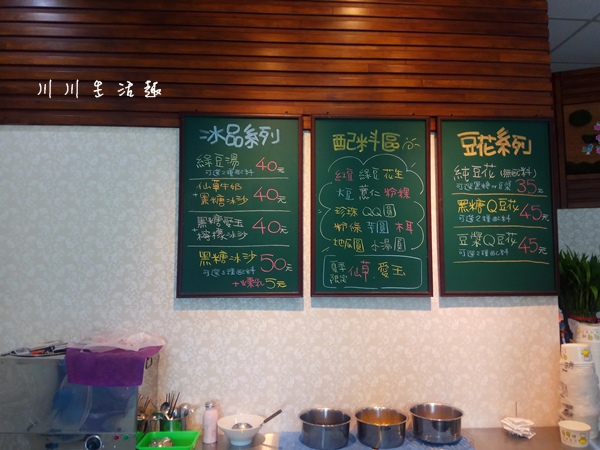 川川生活趣
冰品系列
綠豆湯 40元
可選2種配料
仙草牛奶
黑糖冰沙 40元
黑糖愛玉
檸檬冰沙 40元
黑糖冰沙 50元
可選3種配料
+煉乳5元
配料區
紅豆 綠豆 花生
大豆 薏仁 粉粿
珍珠 QQ圓
粉條 芋圓 木耳
地瓜圓 小湯圓
夏季
限定 仙草 愛玉
豆花系列
純豆花(無配料)
可選黑糖or豆漿 35元
黑糖Q豆花
可選2種配料 45元
豆漿Q豆花
可選2種配料 45元